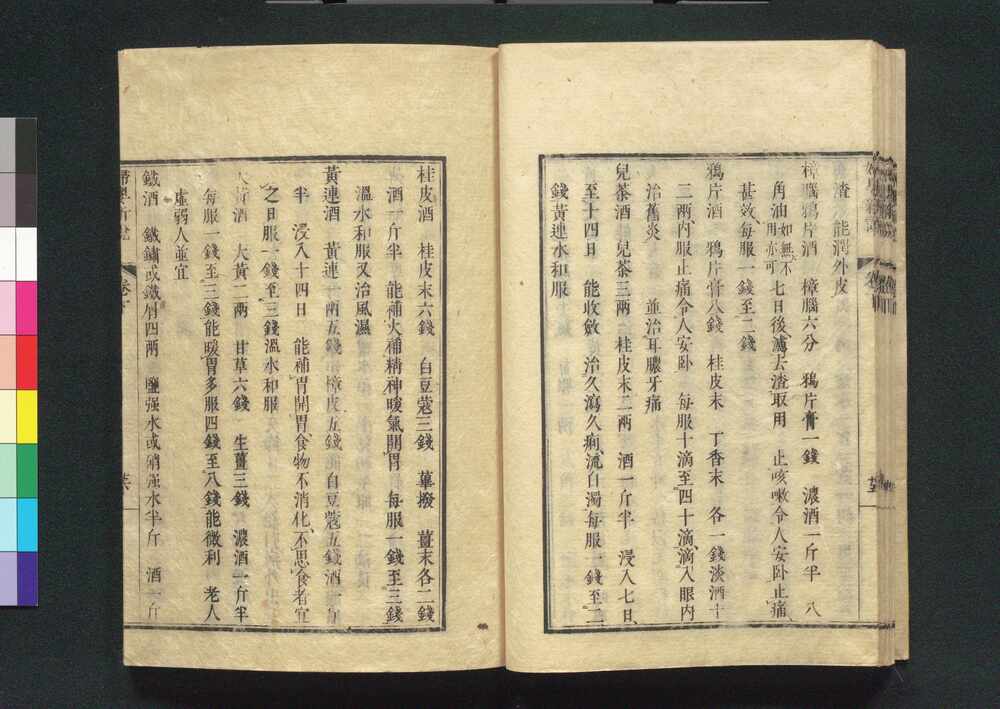 渣 能潤外皮
樟腦鴉片酒 樟腦六分 鴉片膏一錢 濃酒一斤半 八
角油如無不用亦可七日後濾去渣取用 止咳嗽令人安卧止痛
甚效每服一錢至二錢
鴉片酒 鴉片膏八錢 桂皮末 丁香末 各一錢淡酒十
二兩內服止痛令人安卧 每服十滴至四十滴滴入眼內
治舊炎 並治耳膿牙痛
兒茶酒 兒茶三兩 桂皮末二兩 酒一斤半 浸入七日
至十四日 能收斂 治久瀉久痢流白濁每服一錢至二
錢黃連水和服
桂皮酒 桂皮末六錢 白豆蔻三錢 蓽撥 薑末各二錢
酒一斤半 能補火補精神暖氣開胃 每服一錢至三錢
溫水和服又治風濕
黃連酒 黃連一兩五錢 樟皮五錢 白豆蔻五錢酒一斤
半 浸入十四日 能補胃開胃食物不消化不思食者宜
之日服一錢至三錢溫水和服
大黃酒 大黃二兩 甘草六錢 生薑三錢 濃酒一斤半
每服一錢至三錢能暖胃多服四錢至八錢能微利 老人
虛弱人並宜
鐵酒 鐵鏽或鐵屑四兩 鹽强水或硝强水半斤 酒一斤
卷下